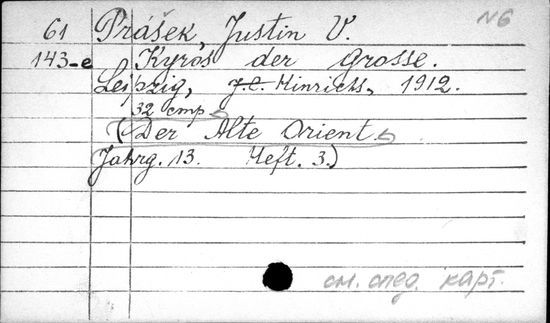 N6
61 Prášek, Justin V.
143-e Kyros der Grosse.
Leipzig, J.C. Hinrichs, 1912.
32 стр.
(Der Alte Orient.
Jahrg. 13. Heft. 3.)
см. след. карт.